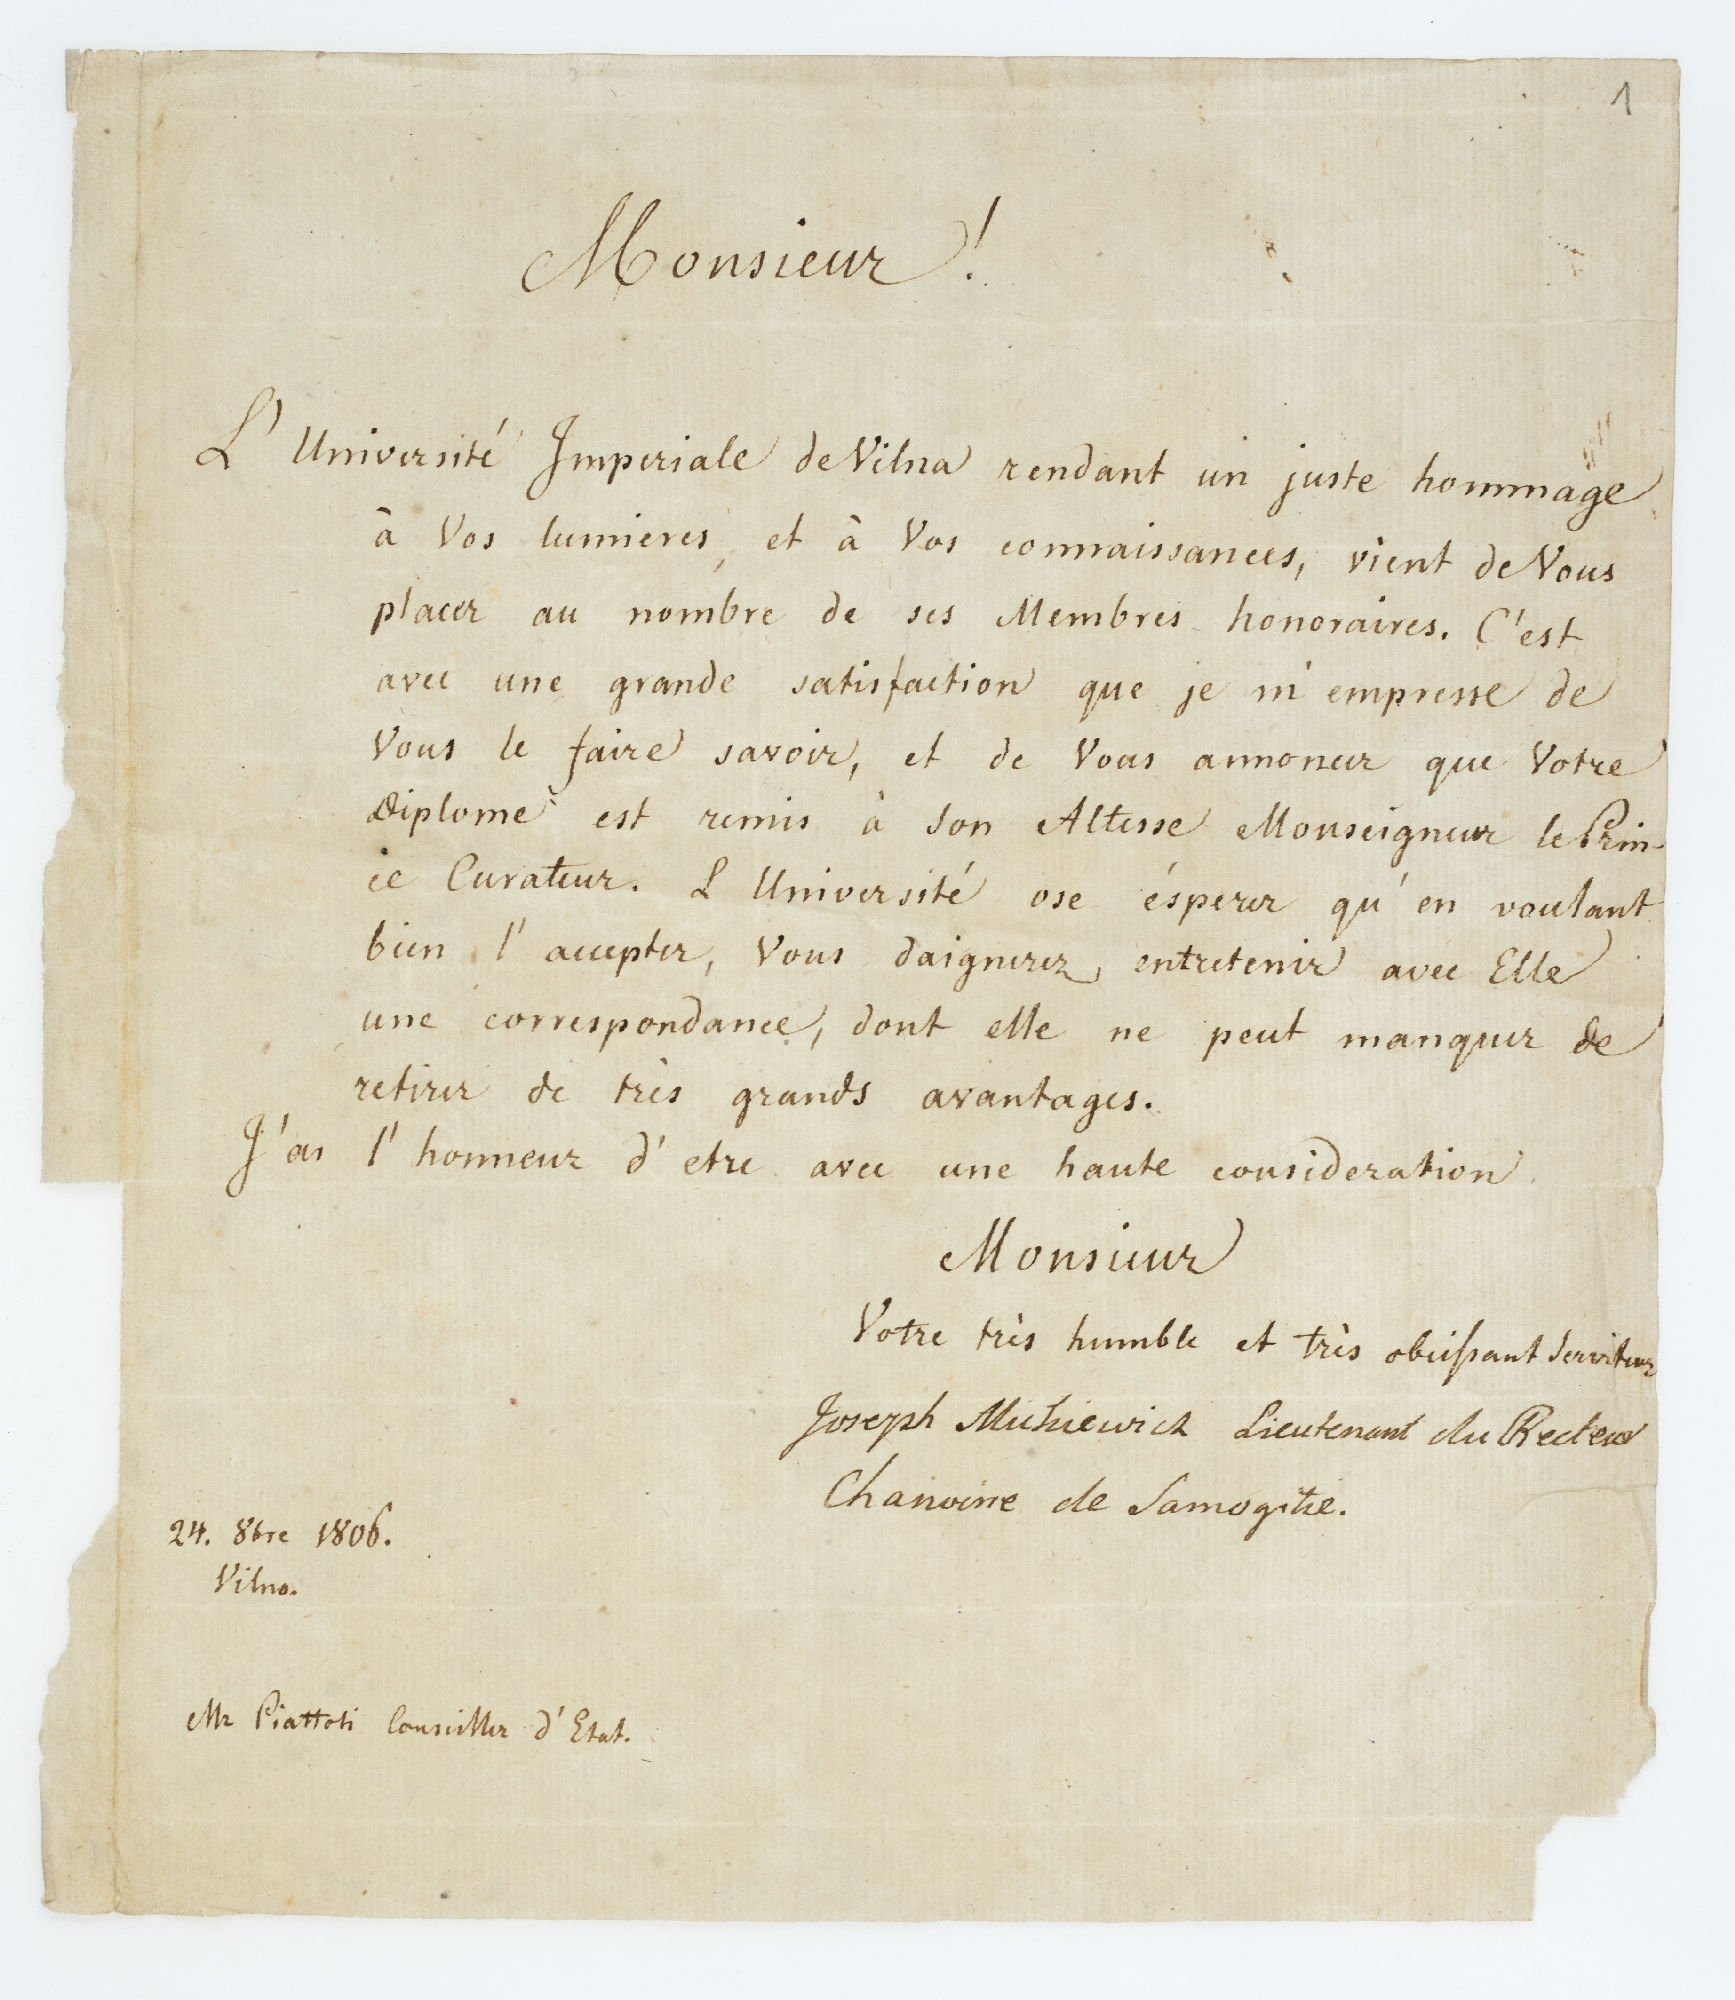 1
Monsieur!
L'Université Imperiale de Vilna rendant un juste hommage
à Vos lumieres, et à Vos connaissances, vient de Vous
placer au nombre de ses Membres honoraires. C'est
avec une grande satisfaction que je m'empresse de
Vous le faire savoir, et de Vous annoncer que Votre
Diplome est remis à Son Altesse Monseigneur le Prin-
ce Curateur. L'Université ose ésperer qu'en voulant
bien l'accepter, Vous daignerez entretenir avec Elle
une correspondance, dont elle ne peut manquer de
retirer de très grands avantages.
J'ai l'honneur d'etre avec une haute consideration
Monsieur
Votre très humble et très obeissant Serviteur
Joseph Mickiewicz Lieutenant du Recteur
Chanoine de Samogitie.
24. 8bre 1806.
Vilno.
Mr Piattoli Conseiller d'Etat.